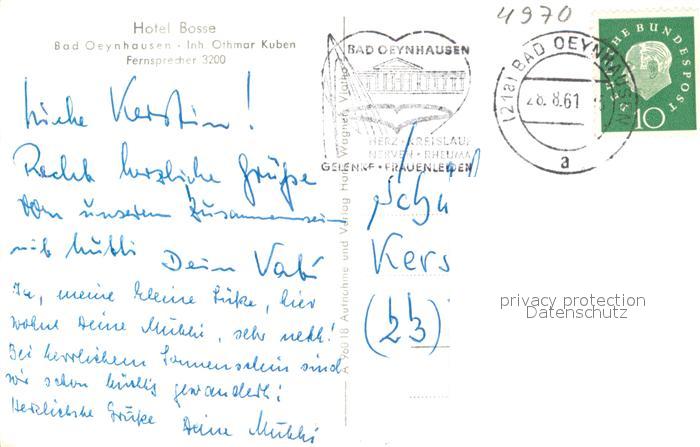 4970
Hotel Bosse
Bad Oeynhausen · Inh. Othmar Kuben
Fernsprecher 3200
Kerstin!
Recht herzliche Grüße
von unserem Zusammensein
mit Mutti Dein Vati
Ja, meine kleine Süße, hier
wohnt Deine Mutti, sehr nett!
Bei herrlichem Sonnenschein sind
wir schon tüchtig gewandert!
Herzlichste Grüße Deine Mutti
BAD OEYNHAUSEN
HERZ · KREISLAUF
NERVEN · RHEUMA
GELENKE · FRAUENLEIDEN
(21a) BAD OEYNHAUSEN
28.8.61
a
CHE BUNDESPOST
10
A 96018 Aufnahme und Verlag Hans Wagner, Vlotho
Schu
Kers
(23)
privacy protection
Datenschutz